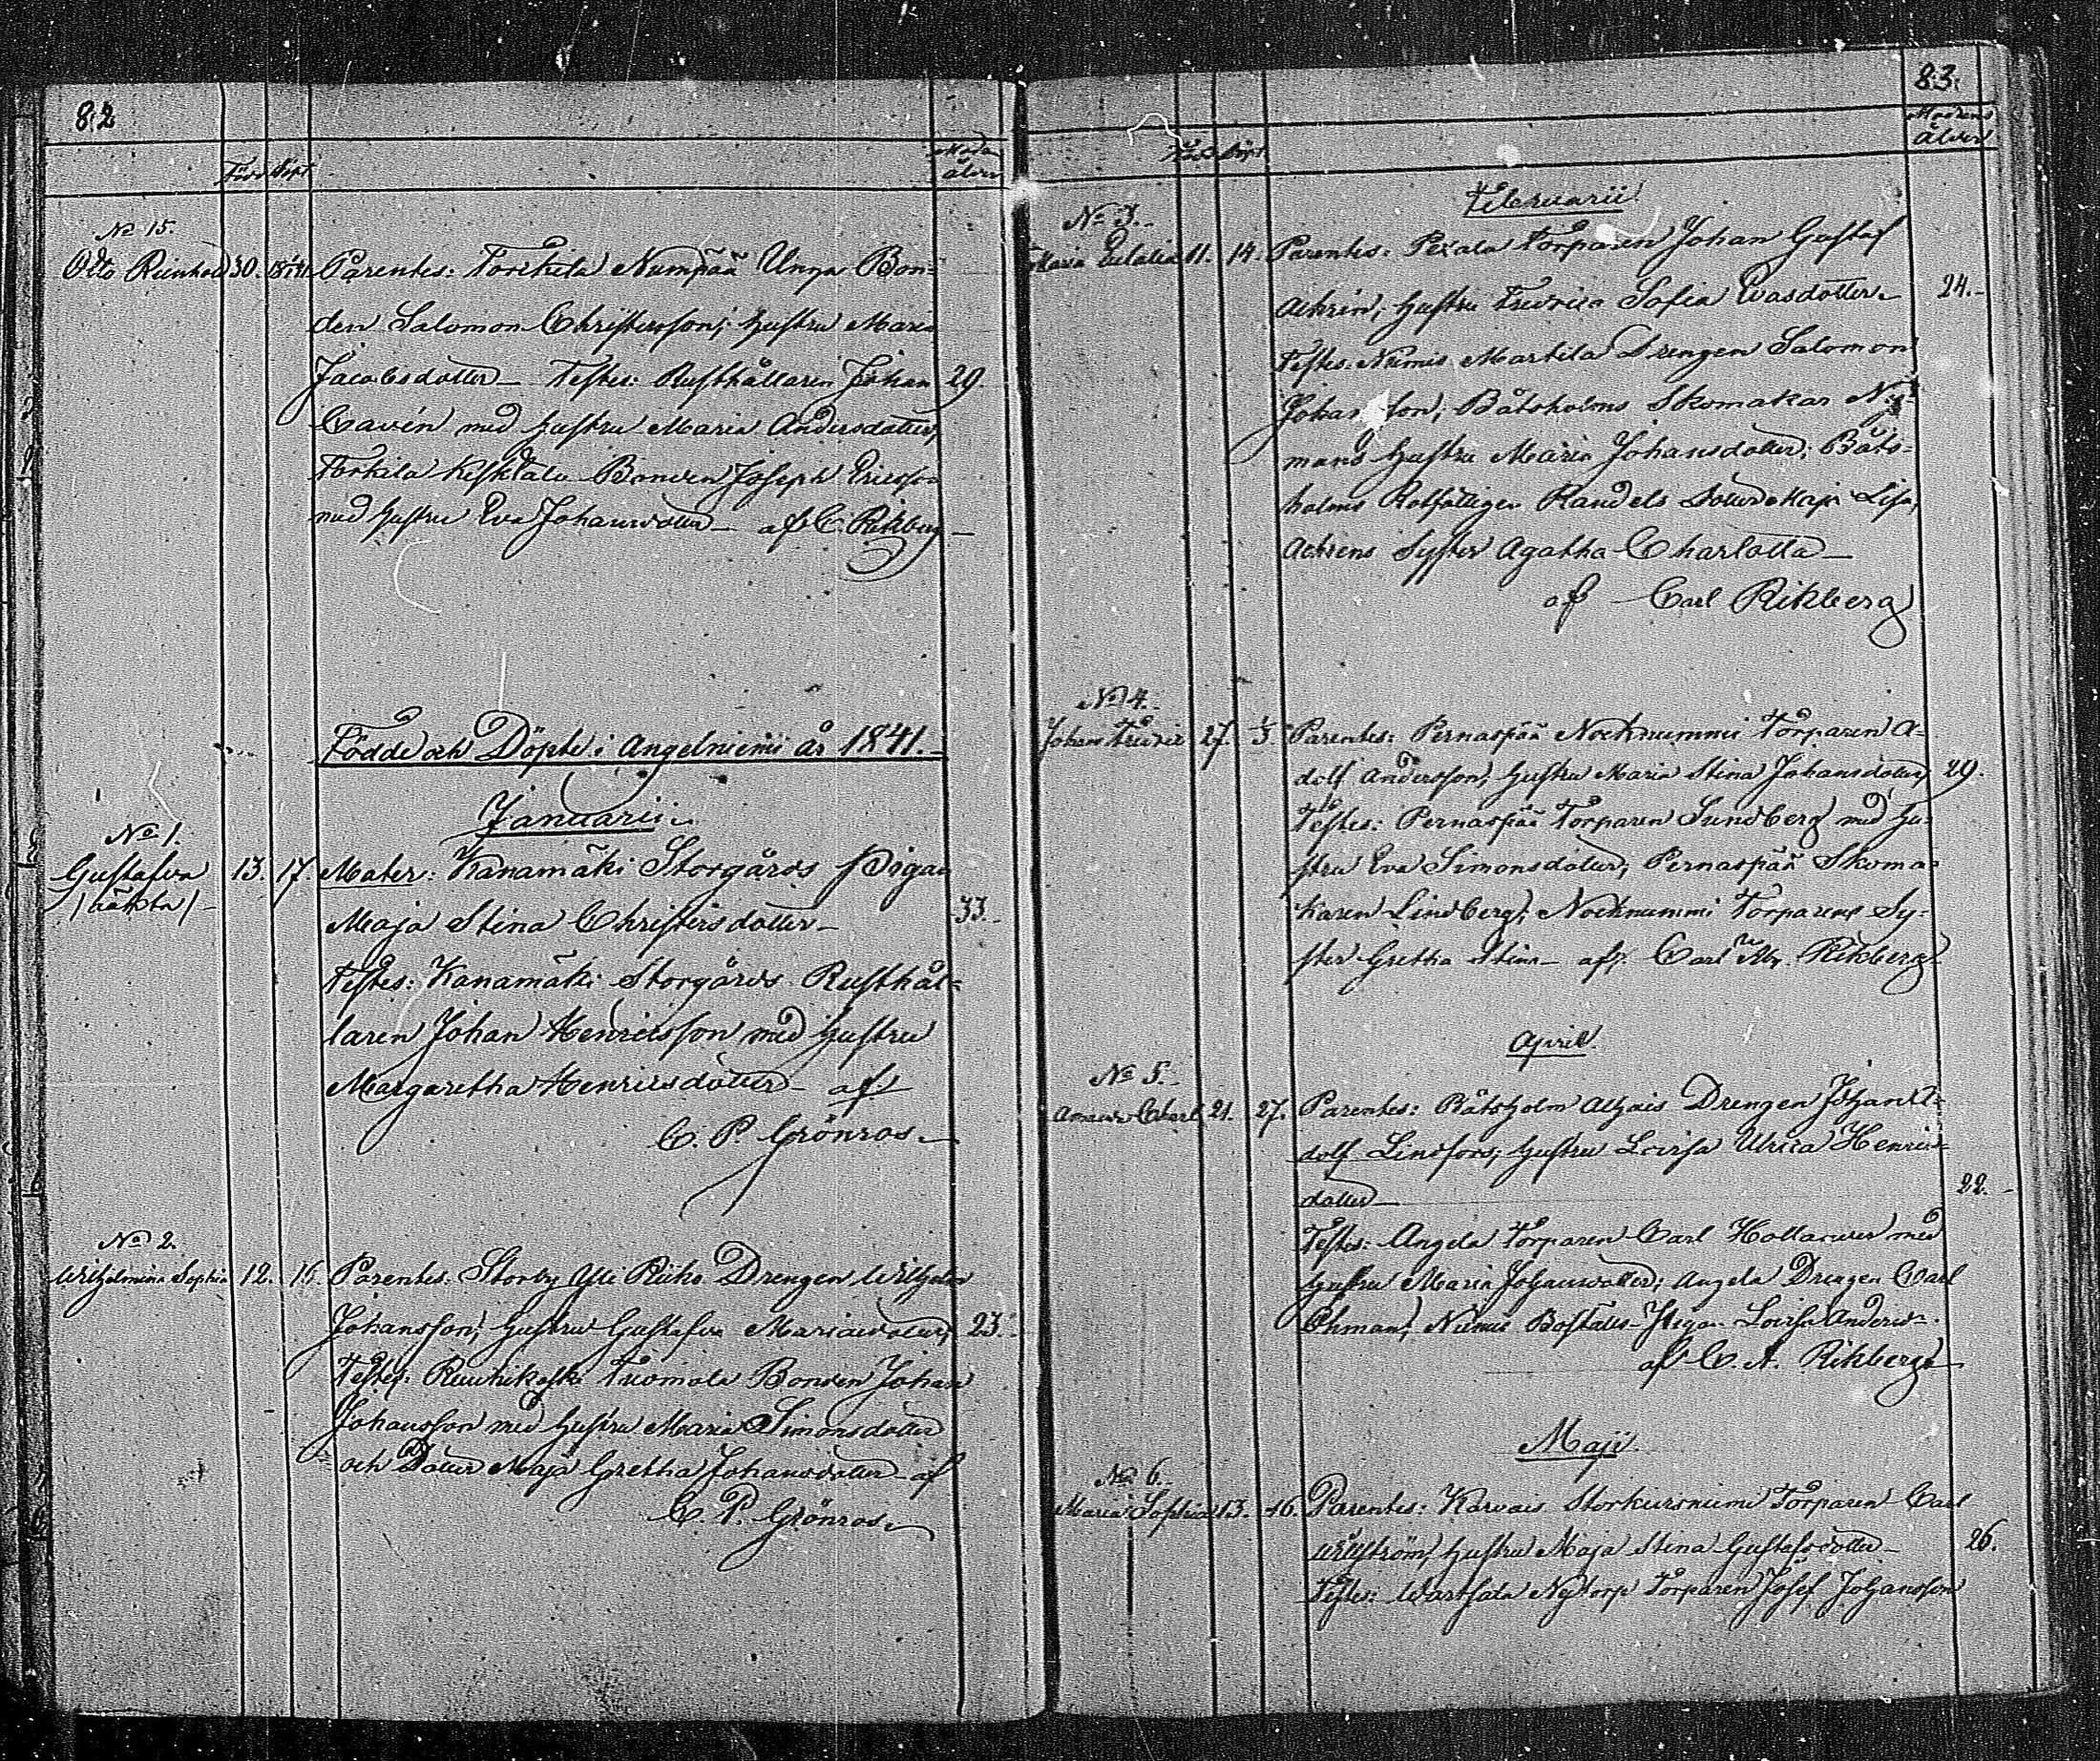 82
Född Döpt
Modrens
ålder
No 15.
Otto Reinhold 30. Parentes: Torikila Numpää Unga Bon-
den Salomon Christersson; hustru Maria
Jacobsdotter_ Testes: Rusthållaren Johan 29.
Cavén med hustru Maria Andersdotter,
Torkila Bonden Joseph Ericsson
med hustru Eva Johansdotter_ af C. Rikberg_
Födde och Döpte i Angelniemi år 1841._
Januarii
No 1.
Gustafva 13. 17. Mater: Kanamäki Storgårds Pigan
/oäkta/
Maja Stina Christersdotter_ 33._
Testes: Kanamäki Storgårds Rusthål-
laren Johan Henricsson med hustru
Margaretha Henricsdotter_ af
C. P. Grönroos_
No 2.
Wilhelmina Sophia 12. Parentes: Storby Yli Riiko Drengen Wilhelm
Johansson; hustru Gustafva 23._
Testes: Tuomola Bonden Johan
Johansson med hustru Maria Simonsdotter
och Dotter Maja Gretha Johansdotter_ af
C. P. Grönros_
83.
Född Döpt
Modrens
ålder
Februarii
No 3._
Maria Eulalia 11. 14. Parentes: Torparen Johan Gustaf
hustru Fredrica Sofia 24._
Testes: Niemis Martila Drengen Salomon
Johansson; Båtsholms Skomakar Ny-
mans hustru Maria Johansdotter; Båts-
holms Dotter Maja Lisa,
Syster Agatha Charlotta_
af Carl Rikberg
No 4._
Johan Fredric 27. Parentes: Pernaspää Torparen A-
dolf Andersson; hustru Maria Stina Johansdotter, 29.
Testes: Pernaspää Torparen Sundberg med hu-
stru Eva Simonsdotter; Pernaspää Skoma-
karen Lindberg; Torparens Sy-
ster Gretha Stina_ af Carl Rikberg
April
No 5._
Carl 21. 27. Parentes: Båtsholm Drengen Johan A-
dolf Lindfors; hustru Lovisa Ulrica Henrics-
dotter_ 22._
Testes: Angela Torparen Carl med
hustru Maria Johansdotter; Angela Drengen Carl
Öhman; Niemis Lovisa
af C. A. Rikberg_
Maji
No 6._
Maria Sophia 13. 16. Parentes: Karvais Torparen Carl
hustru Maja Stina Gustafsdotter_ 26.
Testes: Wartsala Nytorp Torparen Josef Johansson